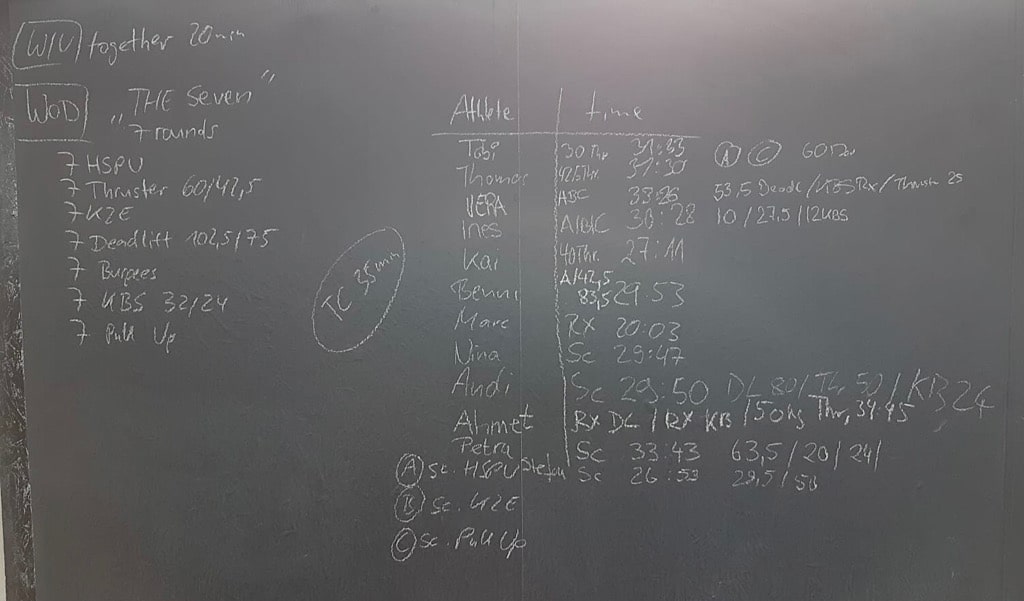 W/U together 20 min
WOD „THE Seven"
7 rounds
7 HSPU
7 Thruster 60/42,5
7 K2E
7 Deadlift 102,5/75
7 Burpees
7 KBS 32/24
7 Pull Up
TC 35 min
Athlete time
Tobi 30 Thr. 31:33 A C
Thomas 42,5 Thr. 31:30
VERA ABC 33:26 53,5 Deadl/KBS Rx/Thruster 25
Ines A/B/C 30:28 10/27,5/12KBS
Kai 40Thr. 27:11
Benni A/42,5 83,5 29:53
Marc RX 20:03
Nina Sc 29:47
Andi Sc 29:50 DL 80/Thr 50/KB 24
Ahmet RX DL/RX KB/50 kg Thr, 34:45
Petra Sc 33:43 63,5/20/24/
Stefan Sc 26:53
A Sc. HSPU
B Sc. K2E
C Sc. Pull Up